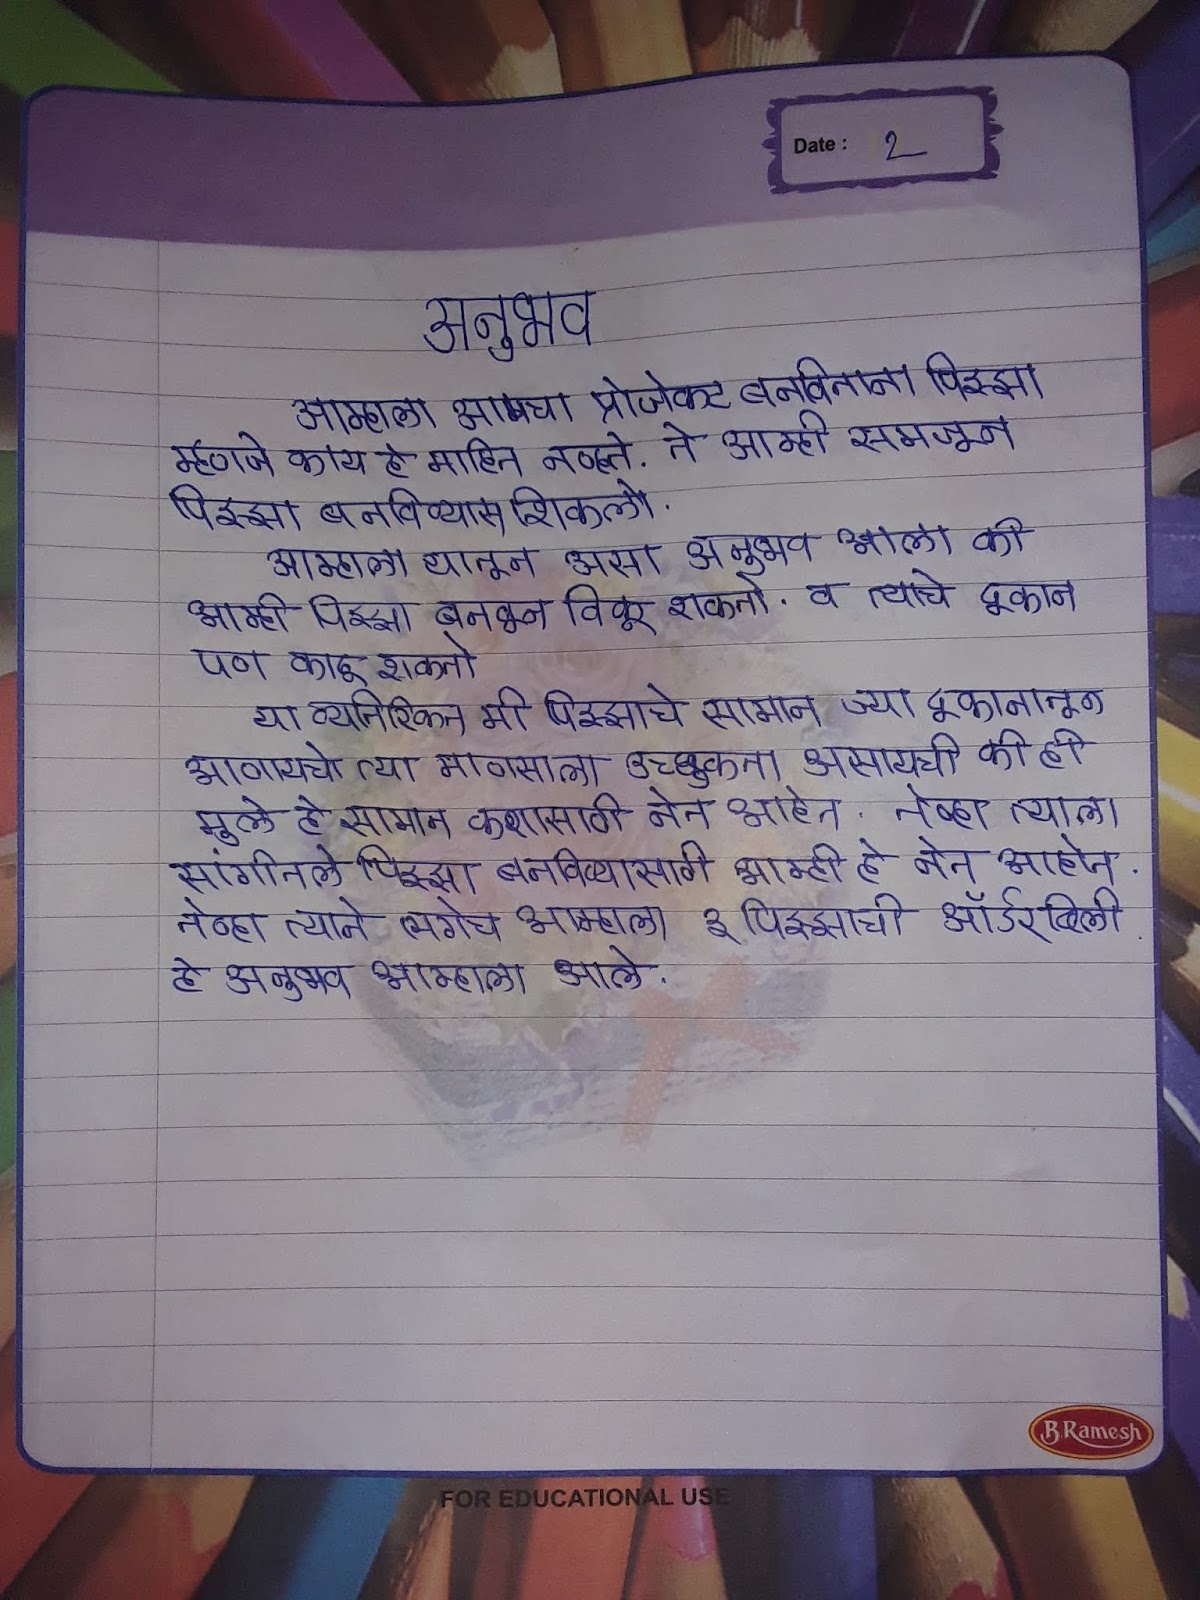 Date : 2
अनुभव
आम्हाला आमचा प्रोजेक्ट बनविताना पिझ्झा
म्हणजे काय हे माहित नव्हते. ते आम्ही समजून
पिझ्झा बनविण्यास शिकलो.
आम्हाला यातून असा अनुभव आला की
आम्ही पिझ्झा बनवून विकू शकतो. व त्याचे दूकान
पण काढू शकतो
या व्यतिरिक्त मी पिझ्झाचे सामान ज्या दूकानातून
आणायचो त्या माणसाला उच्छुकता असायची की ही
मुले हे सामान कशासाठी नेत आहेत. तेव्हा त्याला
सांगीतले पिझ्झा बनविण्यासाठी आम्ही हे नेत आहोत.
तेव्हा त्याने लगेच आम्हाला ३ पिझ्झाची ऑर्डर दिली.
हे अनुभव आम्हाला आले.
B.Ramesh
FOR EDUCATIONAL USE